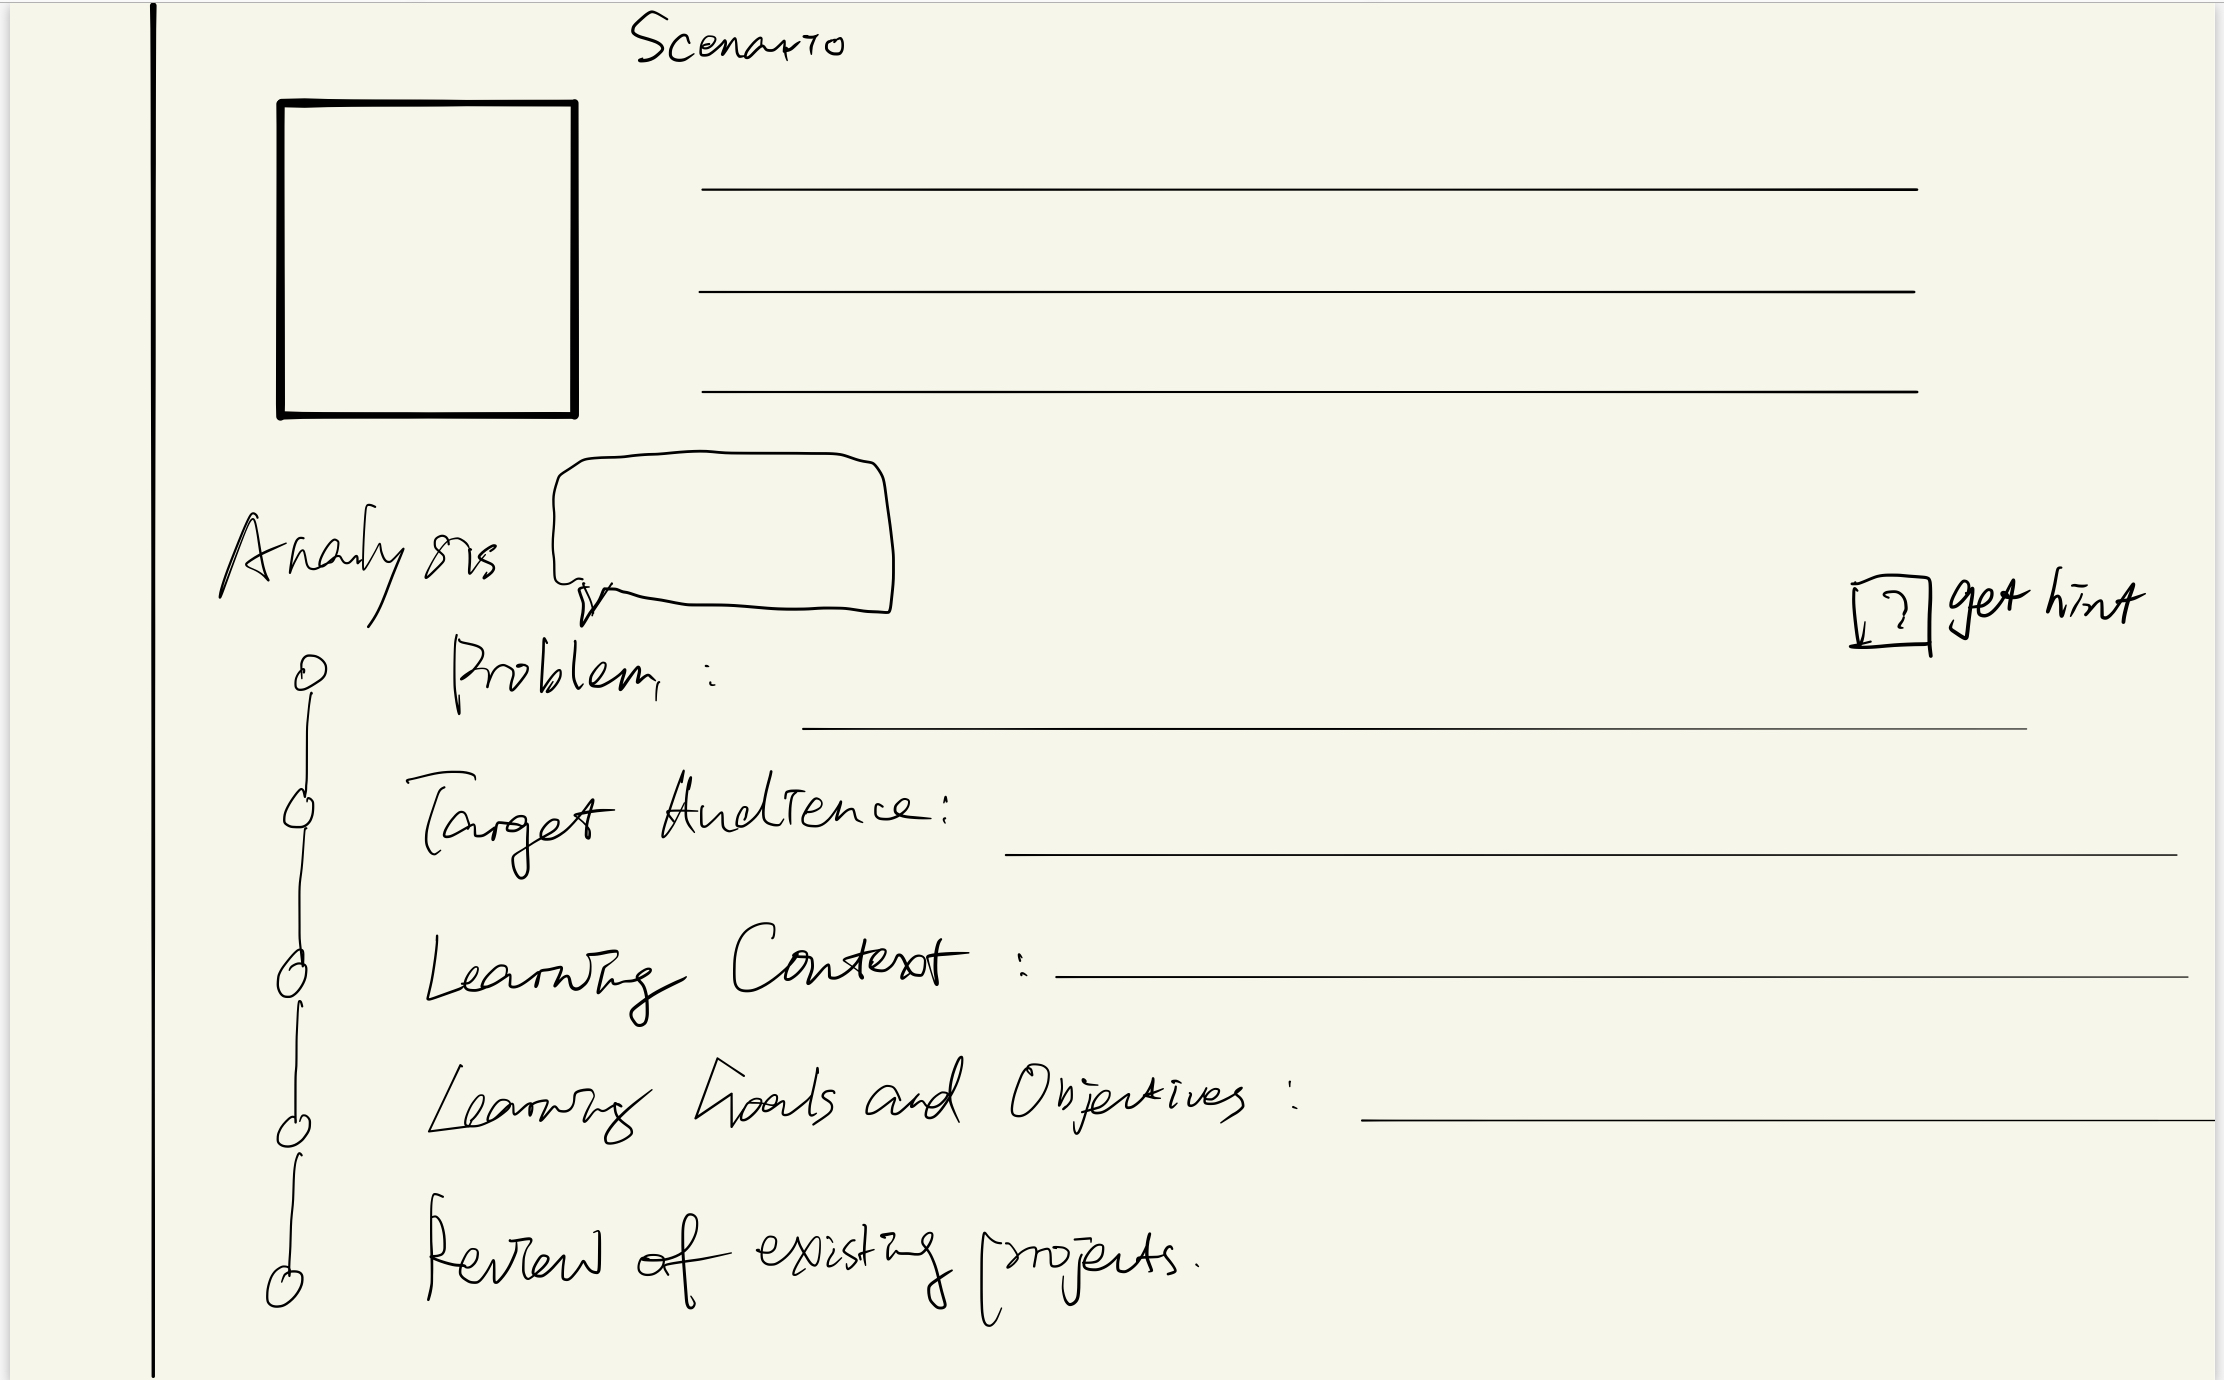 Scenario
Analysis
? get hint
Problem :
Target Audience:
Learning Context :
Learning Goals and Objectives :
Review of existing projects.